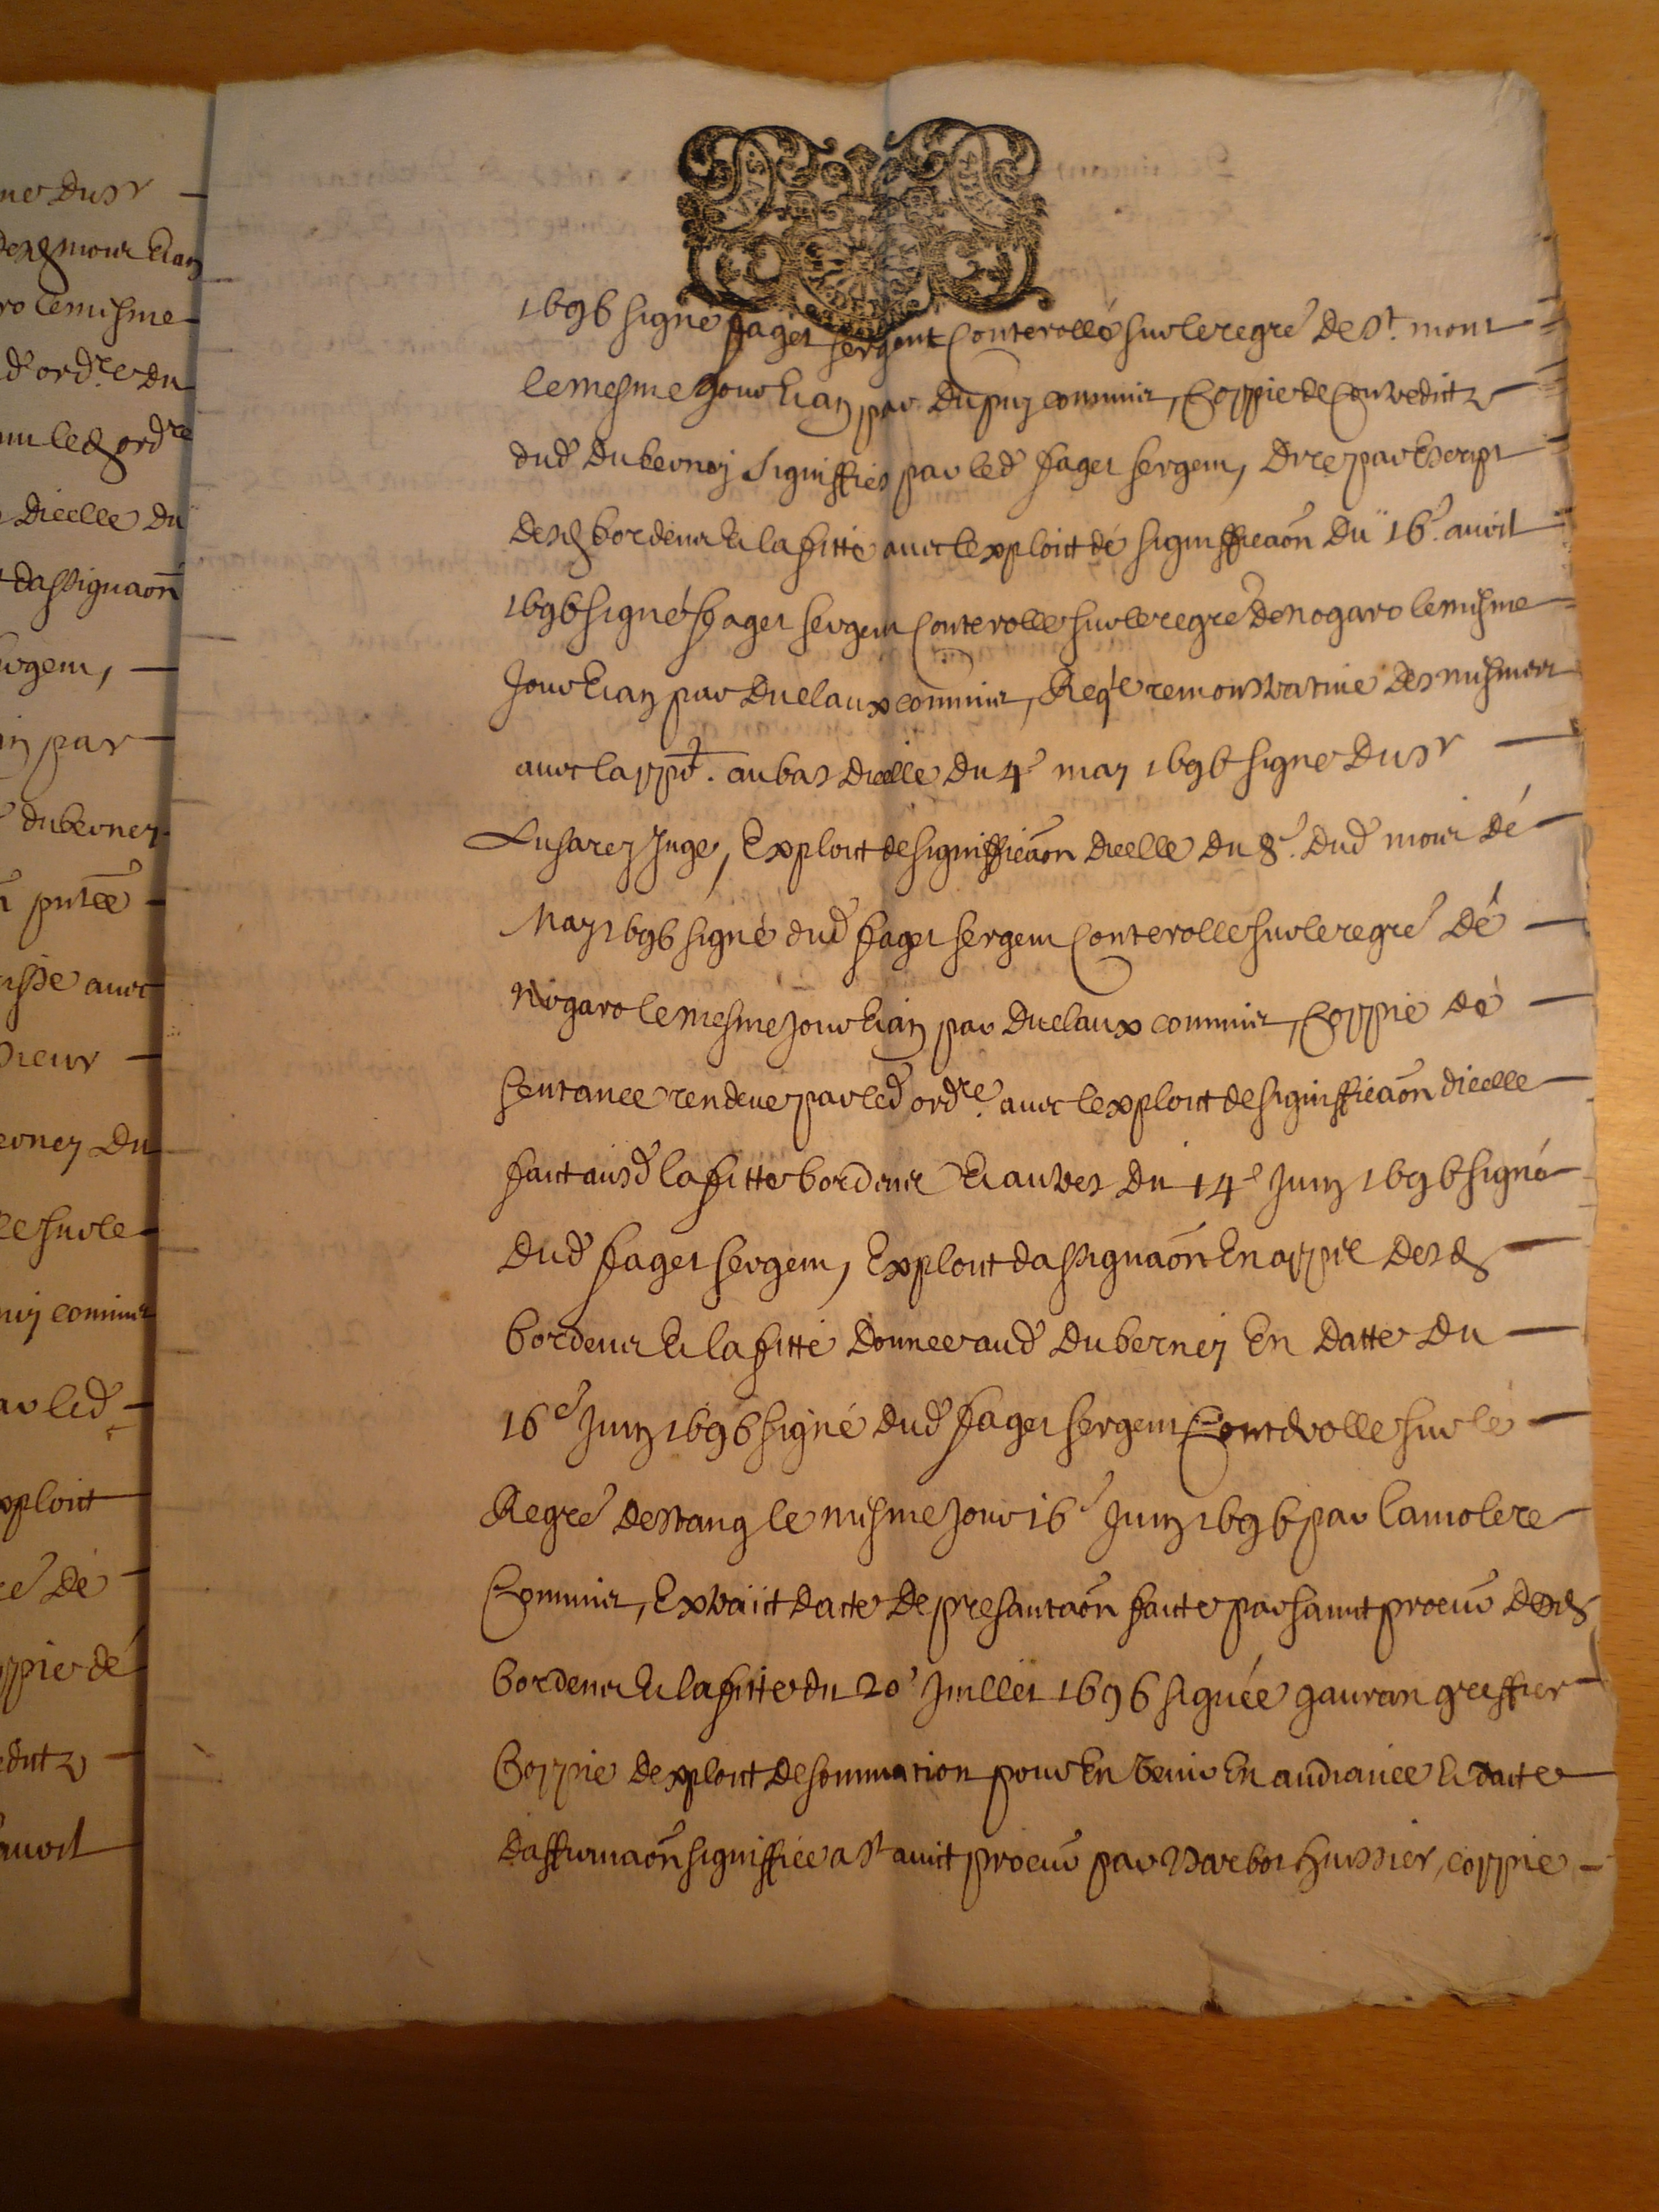 ne du sr
des d mour et an
ro le mesme
d ordre du
led ordre
dicelle du
dassignaon
sergent,
par
duberney
putee
avec
sieur
berney du
le sur le
commis
par led
exploict
de
coppie de
avril
1696 signe faget sergent Conterollé sur le regre de St. mont
le mesme Jour et an par Dupuy commis, Coppie de Contredictz
dud Duberney signiffiés par led faget sergent, dire par Escript
desd bordenr et lafitte avec lexploict de signifficaon Du 16e. avril
1696 signé faget sergent Conterolle sur le regre De nogaro le mesme
Jour et an par Duclaux commis, Reqte remonstrative des mesmes
avec lappt. au bas dicelle Du 4e may 1696 signe du Sr
Lusarey Juge, Exploict de signifficaon dicelle du 8e. dud mois de
May 1696 signé dud faget sergent Conterolle sur le regre de
Nogaro le mesme Jour et an par Duclaux commis, Coppie de
sentance rendeue par led ordre. avec lexploict de signifficaon dicelle
faict ausd lafitte bordenr et autres du 14e Juin 1696 signé
Dud faget sergent, Exploict dassignaon En appel desd
bordenr et lafitte donnee aud Duberney En datte du
16e Juin 1696 signé dud faget sergent Conterolle sur le
Regre destang le mesme Jour 16e Juin 1696 par Lamolere
Commis, Extraict dacte de presantaon faicte par saint procur desd
bordenr et lafitte du 20e Juillet 1696 signée gauran greffier
Coppie dexploict de sommation pour En venir En audiance et dacte
daffirmaon signiffiée a st avict procur par Narbot huissier, coppie